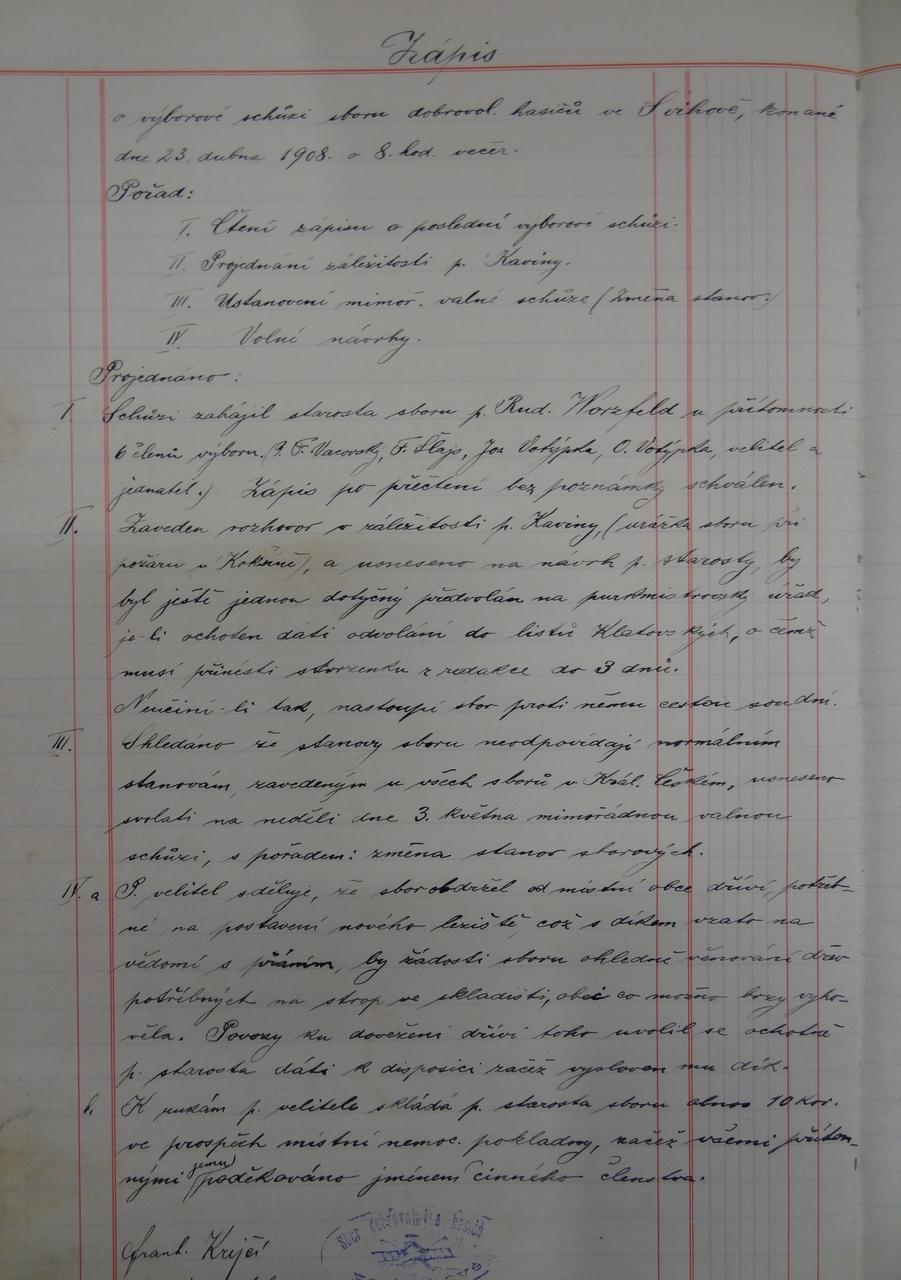 Zápis
o výborové schůzi sboru dobrovol. hasičů ve Švihově, konané
dne 23. dubna 1908. o 8. hod. večer.
Pořad:
I. Čtení zápisu o poslední výborové schůzi.
II. Projednání záležitosti p. Kaviny.
III. Ustanovení mimoř. valné schůze (Změna stanov.)
IV. Volní návrhy.
Projednáno:
I. Schůzi zahájil starosta sboru p. Rud. Worzfeld u přítomnosti
6 členů výboru. (P. F. Vacovský, F. Šlajs, Jos Votýpka, O. Votýpka, velitel a
jednatel.) Zápis po přečtení bez poznámky schválen.
II. Zaveden rozhovor v záležitosti p. Kaviny, (urážka sboru při
požáru v Kokšíně), a usneseno na návrh p. starosty, by
byl ještě jednou dotyčný předvolán na purkmistrovský úřad,
je-li ochoten dáti odvolání do listů Klatovských, o čemž
musí přinésti stvrzenku z redakce do 3 dnů.
Neučiní-li tak, nastoupí sbor proti němu cestou soudní.
III. Shledáno že stanovy sboru neodpovídají normálním
stanovám, zavedeným u všech sborů v Král. Českém, usneseno
svolati na neděli dne 3. května mimořádnou valnou
schůzi, s pořadem: změna stanov sborových.
IV. a P. velitel sděluje, že sbor obdržel od místní obce dříví, potřeb-
né na postavení nového leziště, což s díkem vzato na
vědomí s přáním, by žádosti sboru ohledně věnování dřev
potřebných na strop ve skladišti, obec co možno brzy vyho-
věla. Povozy ku dovežení dříví toho uvolil se ochotně
p. starosta dáti k disposici začež vysloven mu dík.
b. K rukám p. velitele skládá p. starosta sboru obnos 10 kor.
ve prospěch místní nemoc. pokladny, začež všemi přítom-
nými jemu poděkováno jménem činného členstva.
Frant. Krejčí
Sbor dobrovolných hasičů